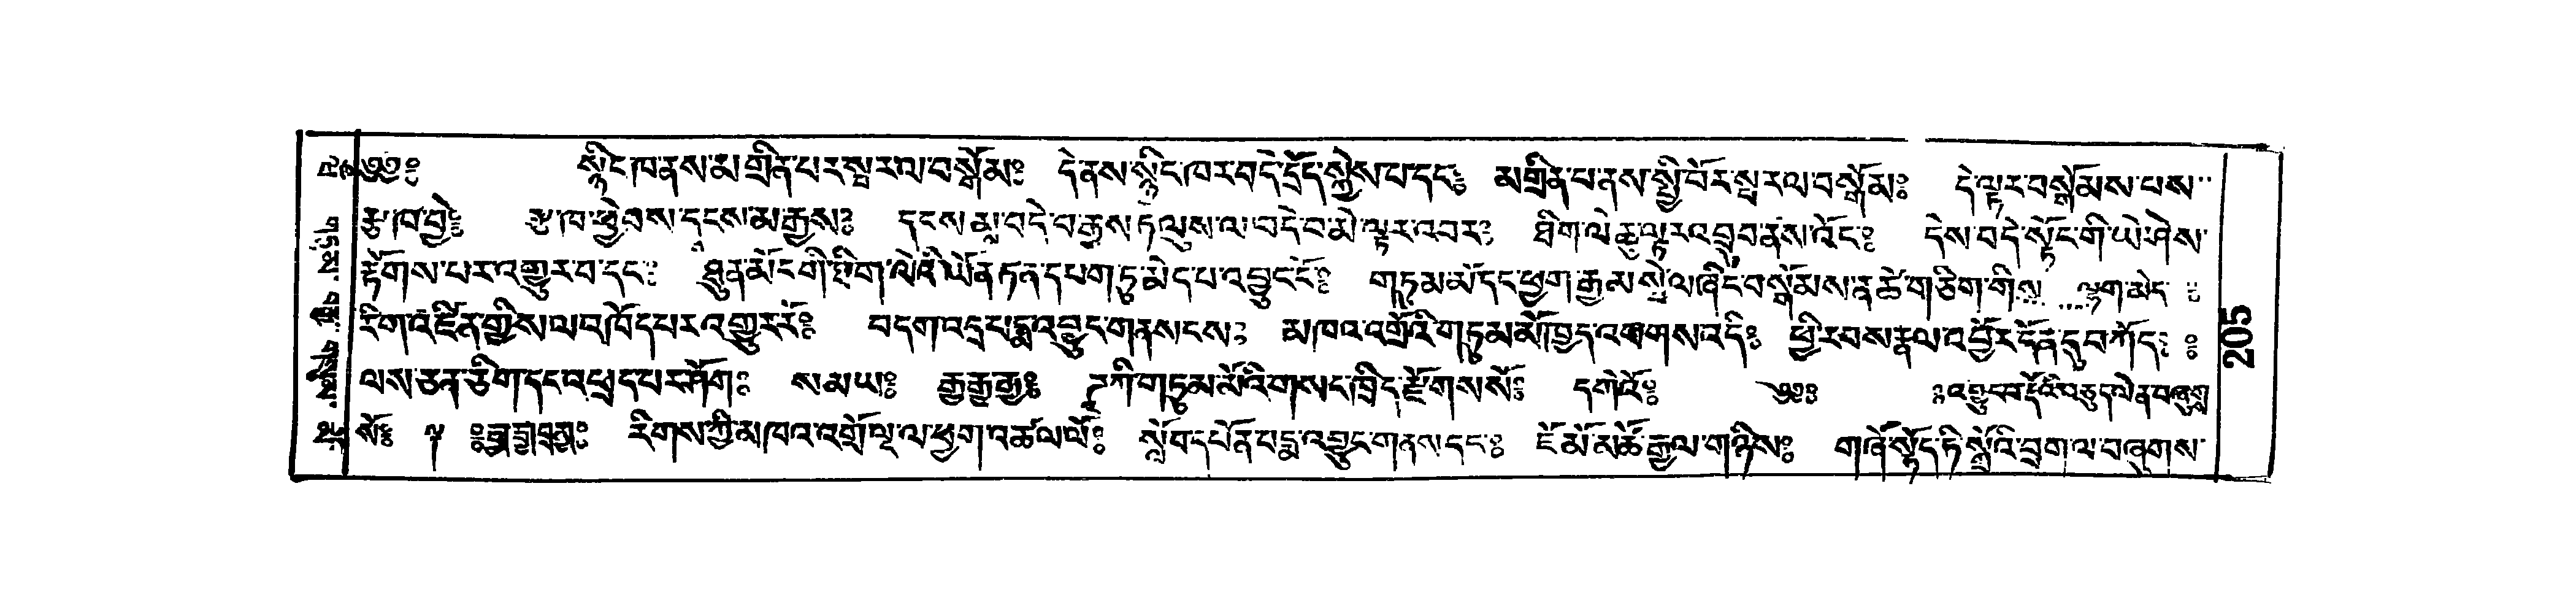 ༄༅༔ སྙིང་ཁ་ནས་མ་གྲིན་པར་སྤར་ལ་བསྒོམ༔ དེ་ནས་སྙིང་ཁར་བདེ་དྲོད་སྐྱེས་པ་དང༔ མགྲིན་པ་ནས་སྤྱི་བོར་སྤར་ལ་བསྒོམ༔ དེ་ལྟར་བསྒོམས་པས་
རྩ་ཁ་བྱེ༔ རྩ་ཁ་ཕྱེ་བས་དྭངས་མ་རྒྱས༔ དངས་མ་བདེ་བ་རྒྱས་ཏེ་ལུས་ལ་བདེ་བ་མེ་ལྟར་འབར༔ ཐིག་ལེ་ཆུ་ལྟར་འབྲུབ་ནས་འོང༔ དེས་བདེ་སྟོང་གི་ཡེ་ཤེས་
རྟོགས་པར་འགྱུར་བ་དང༔ ཐུན་མོང་གི་ཐིག་ལེའི་ཡོན་ཏན་དཔག་ཏུ་མེད་པ་འབྱུང་ངོ༔ གཏུམ་མོ་དང་ཕྱག་རྒྱ་མ་སྤྲེལ་ཞིང་བསྒོམས་ན་ཚེ་གཅིག་གིས་ ལྷག་མེད༔
རིག་འཛིན་གྱིས་ལ་བཁོད་པར་འགྱུར་རོ༔ བདག་འདྲ་པདྨ་འབྱུང་གནས་ངས༔ མཁའ་འགྲོའི་གཏུམ་མོ་ཁྱད་འཕགས་འདི༔ ཕྱི་རབས་རྣལ་འབྱོར་དོན་དུ་བཀོད༔
ལས་ཅན་ཅིག་དང་འཕྲད་པར་ཤོག༔ ས་མ་ཡ༔ རྒྱ་རྒྱ་རྒྱ༔ ཌཱཀི་གཏུམ་མོའི་གསང་ཁྲིད་རྫོགས་སོ༔ དགེའོ༔ ༄༔ ༔འབྱུང་བ་རྡོའི་བཅུད་ལེན་བཞུགས་
སོ༔ ༔ རིགས་ཀྱི་མཁའ་འགྲོ་ལྔ་ལ་ཕྱག་འཚལ་ལོ༔ སློབ་དཔོན་པདྨ་འབྱུང་གནས་དང༔ ཇོ་མོ་མཚོ་རྒྱལ་གཉིས༔ གཞོ་སྟོད་ཏི་སྒྲོའི་བྲག་ལ་བཞུགས་
507